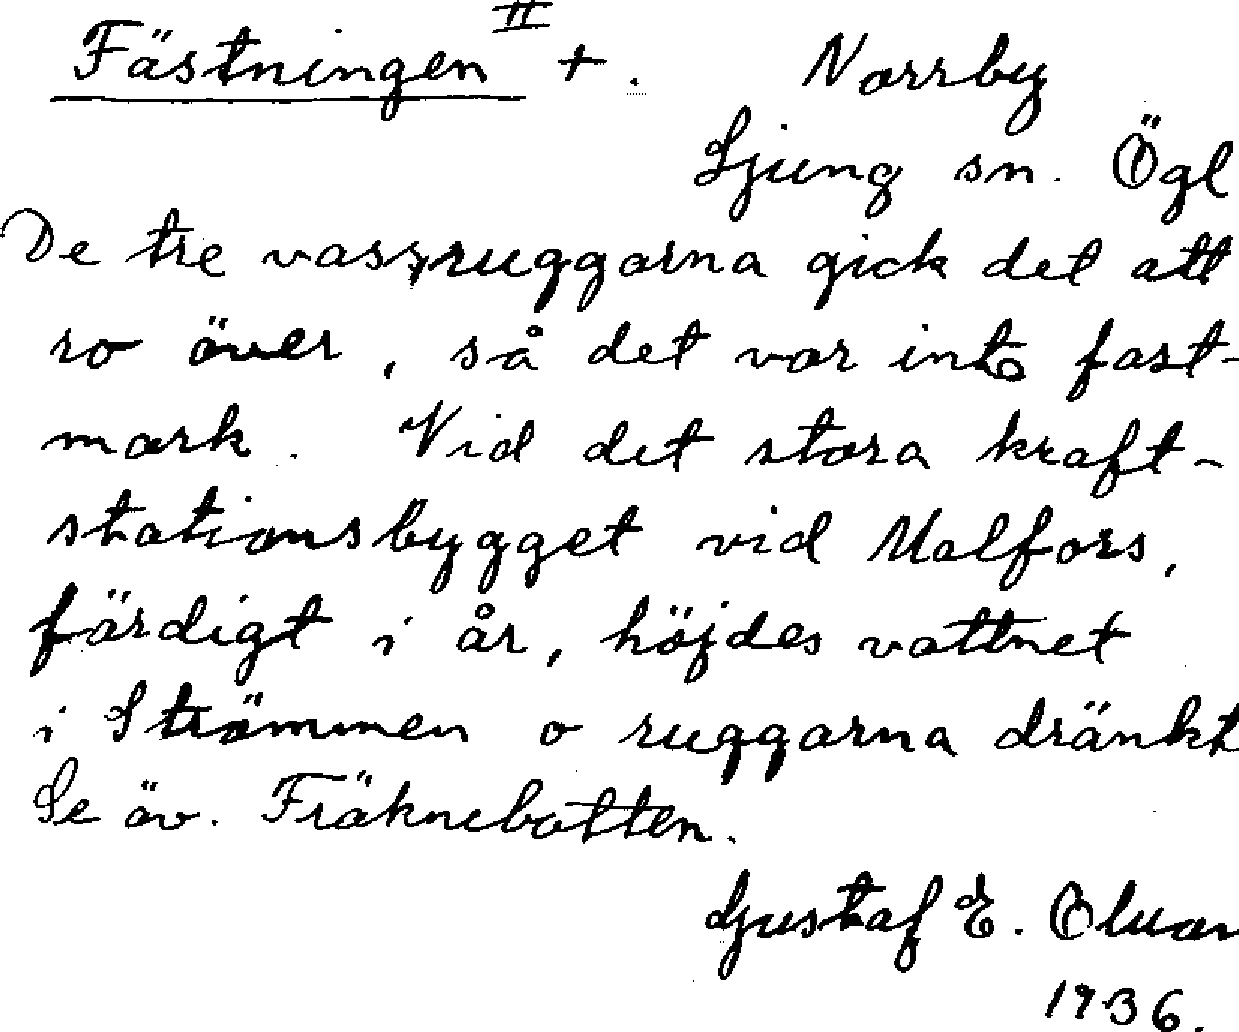 Fästningen II + . Norrby
Ljung sn. Ögl
De tre vassruggarna gick det att
ro över, så det var inte fast-
mark. Vid det stora kraft-
stationsbygget vid Malfors,
färdigt i år, höjdes vattnet
i Strömmen o ruggarna dränkt
Se äv. Fräknebotten.
Gustaf E.
1936.